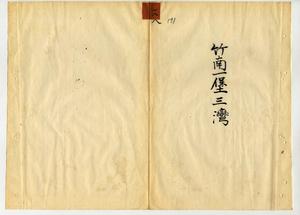 竹南一堡三灣